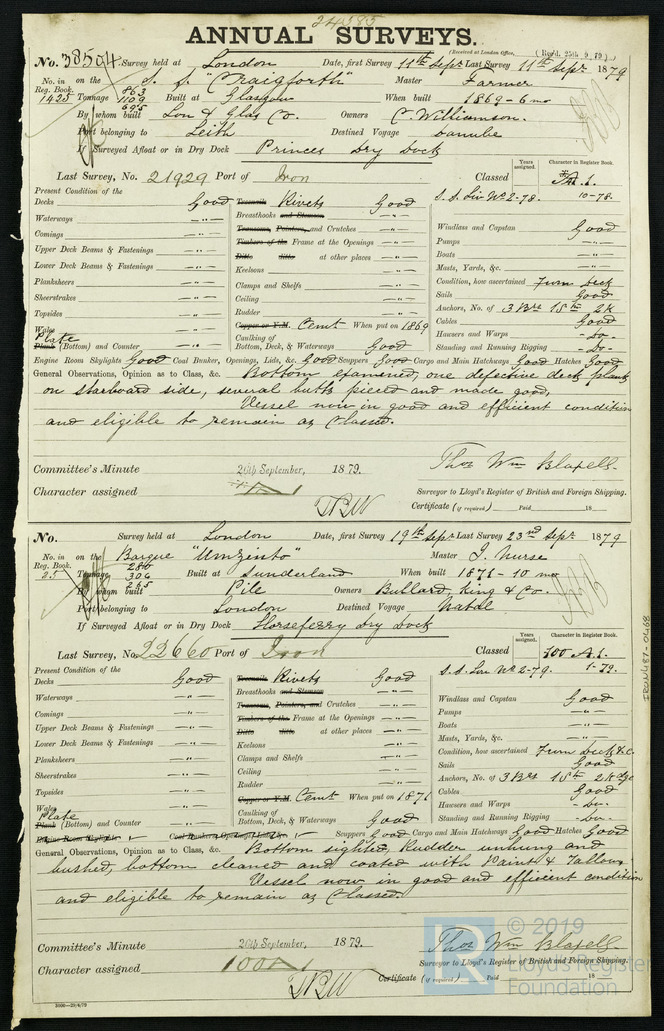 24385
ANNUAL SURVEYS.
(Received at London Office, (Recd. 25th 9 79)
No. 38504 Survey held at London Date, first Survey 11th Septr Last Survey 11th Septr 1879
No. in on the S. S. "Craigforth" Master Farmer
Reg. Book. 863
1425 Tonnage 1109 Built at Glasgow When built 1869-6 mo
695
By whom built Lon & Glas Co. Owners C. Williamson.
Port belonging to Leith Destined Voyage Danube
If Surveyed Afloat or in Dry Dock Princes Dry Dock
Years assigned. Character in Register Book.
Last Survey, No. 21929 Port of Iron Classed A.1.
S. S. Liv No 2-78. 10-78.
Present Condition of the
Decks Good Treenails Rivets Good
Waterways -"- Breasthooks and Stemson -"- Windlass and Capstan Good
Comings -"- Transoms, Pointers, and Crutches -"- Pumps -"-
Upper Deck Beams & Fastenings -"- Timbers of the Frame at the Openings -"- Boats -"-
Lower Deck Beams & Fastenings -"- Ditto ditto at other places -"- Masts, Yards, &c. -"-
Planksheers -"- Keelsons -"- Condition, how ascertained From Deck
Sheerstrakes -"- Clamps and Shelfs -"- Sails Good
Topsides -"- Ceiling -"- Anchors, No. of 3 Brs 1 St 2 K
Wales Rudder -"- Cables Good
Plate Copper or Y.M. Cemt When put on 1869 Hawsers and Warps -do-
Plank (Bottom) and Counter -"- Caulking of Bottom, Deck, & Waterways Good Standing and Running Rigging -do-
Engine Room Skylights Good Coal Bunker, Openings, Lids, &c. Good Scuppers Good Cargo and Main Hatchways Good Hatches Good
General Observations, Opinion as to Class, &c. Bottom examined, one defective deck plank
on starboard side, several butts pieced and made good.
Vessel now in good and efficient condition
and eligible to remain as Classed.
Committee's Minute 26th September, 1879. Thos Wm Blaxell.
Character assigned Surveyor to Lloyd's Register of British and Foreign Shipping.
Certificate (if required) Paid 18
No. Survey held at London Date, first Survey 19th Septr Last Survey 23rd Septr 1879
No. in on the Barque "Umzinto" Master J. Nurse
Reg. Book. 280
25 Tonnage 304 Built at Sunderland When built 1871-10 mo
265
By whom built Pile Owners Bullard, King & Co.
Port belonging to London Destined Voyage Natal
If Surveyed Afloat or in Dry Dock Horseferry Dry Dock
Years assigned. Character in Register Book.
Last Survey, No. 22660 Port of Iron Classed 100 A.1.
S. S. Lon No 2-79. 1-79.
Present Condition of the
Decks Good Treenails Rivets Good
Waterways -"- Breasthooks and Stemson -"- Windlass and Capstan Good
Comings -"- Transoms, Pointers, and Crutches -"- Pumps -"-
Upper Deck Beams & Fastenings -"- Timbers of the Frame at the Openings -"- Boats -"-
Lower Deck Beams & Fastenings -"- Ditto ditto at other places -"- Masts, Yards, &c. -"-
Planksheers -"- Keelsons -"- Condition, how ascertained From Deck &c.
Sheerstrakes -"- Clamps and Shelfs -"- Sails Good
Topsides -"- Ceiling -"- Anchors, No. of 3 Brs 1 St 2 Kdge
Wales Rudder -"- Cables Good
Plate Copper or Y.M. Cemt When put on 1871 Hawsers and Warps -do-
Plank (Bottom) and Counter -"- Caulking of Bottom, Deck, & Waterways Good Standing and Running Rigging -do-
Engine Room Skylights Coal Bunker, Openings, Lids, &c. Scuppers Good Cargo and Main Hatchways Good Hatches Good
General Observations, Opinion as to Class, &c. Bottom sighted, Rudder unhung and
bushed, bottom cleaned and coated with Paint & Tallow.
Vessel now in good and efficient condition
and eligible to remain as Classed.
Committee's Minute 26th September, 1879. Thos Wm Blaxell.
Character assigned 100A1 Surveyor to Lloyd's Register of British and Foreign Shipping.
Certificate (if required) Paid 18
IRON487-0468
© 2019
Lloyd's Register
Foundation